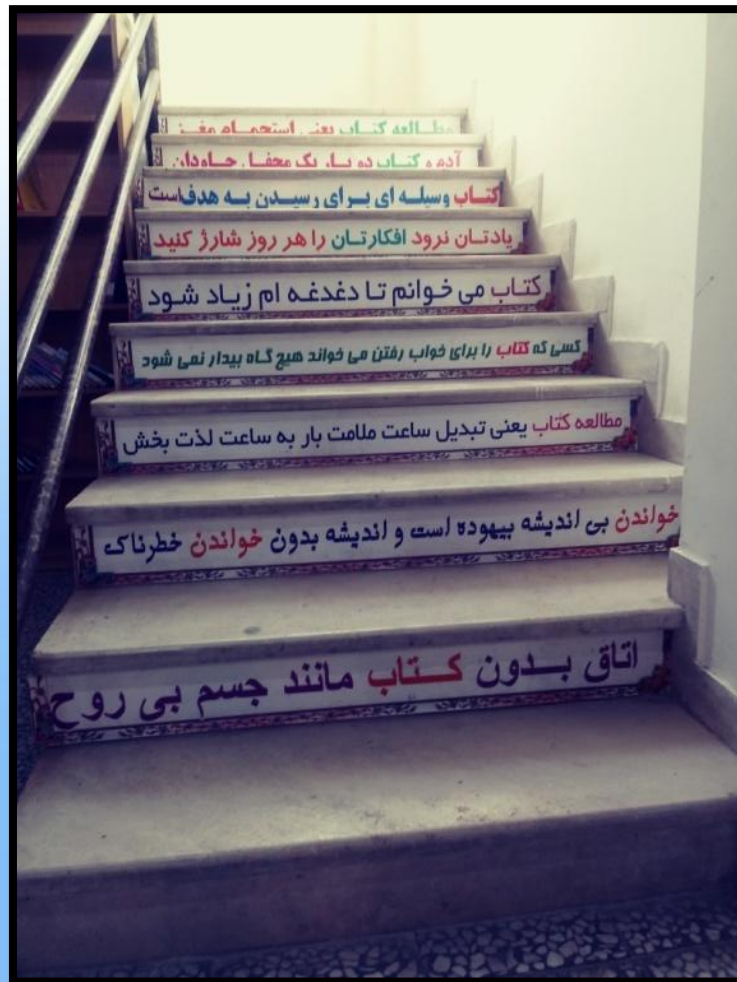 مطالعه کتاب یعنی استحمام مغز
آدم و کتاب دو یار یک محفل جاودان
کتاب وسیله ای برای رسیدن به هدف است
یادتان نرود افکارتان را هر روز شارژ کنید
کتاب می خوانم تا دغدغه ام زیاد شود
کسی که کتاب را برای خواب رفتن می خواند هیچ گاه بیدار نمی شود
مطالعه کتاب یعنی تبدیل ساعت ملامت بار به ساعت لذت بخش
خواندن بی اندیشه بیهوده است و اندیشه بدون خواندن خطرناک
اتاق بدون کتاب مانند جسم بی روح